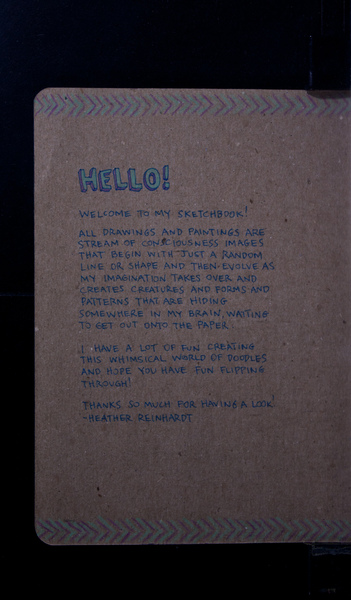 HELLO!
WELCOME TO MY SKETCHBOOK!
ALL DRAWINGS AND PAINTINGS ARE
STREAM OF CONSCIOUSNESS IMAGES
THAT BEGIN WITH JUST A RANDOM
LINE OR SHAPE AND THEN EVOLVE AS
MY IMAGINATION TAKES OVER AND
CREATES CREATURES AND FORMS AND
PATTERNS THAT ARE HIDING
SOMEWHERE IN MY BRAIN, WAITING
TO GET OUT ONTO THE PAPER.
I HAVE A LOT OF FUN CREATING
THIS WHIMSICAL WORLD OF DOODLES
AND HOPE YOU HAVE FUN FLIPPING
THROUGH!
THANKS SO MUCH FOR HAVING A LOOK!
-HEATHER REINHARDT